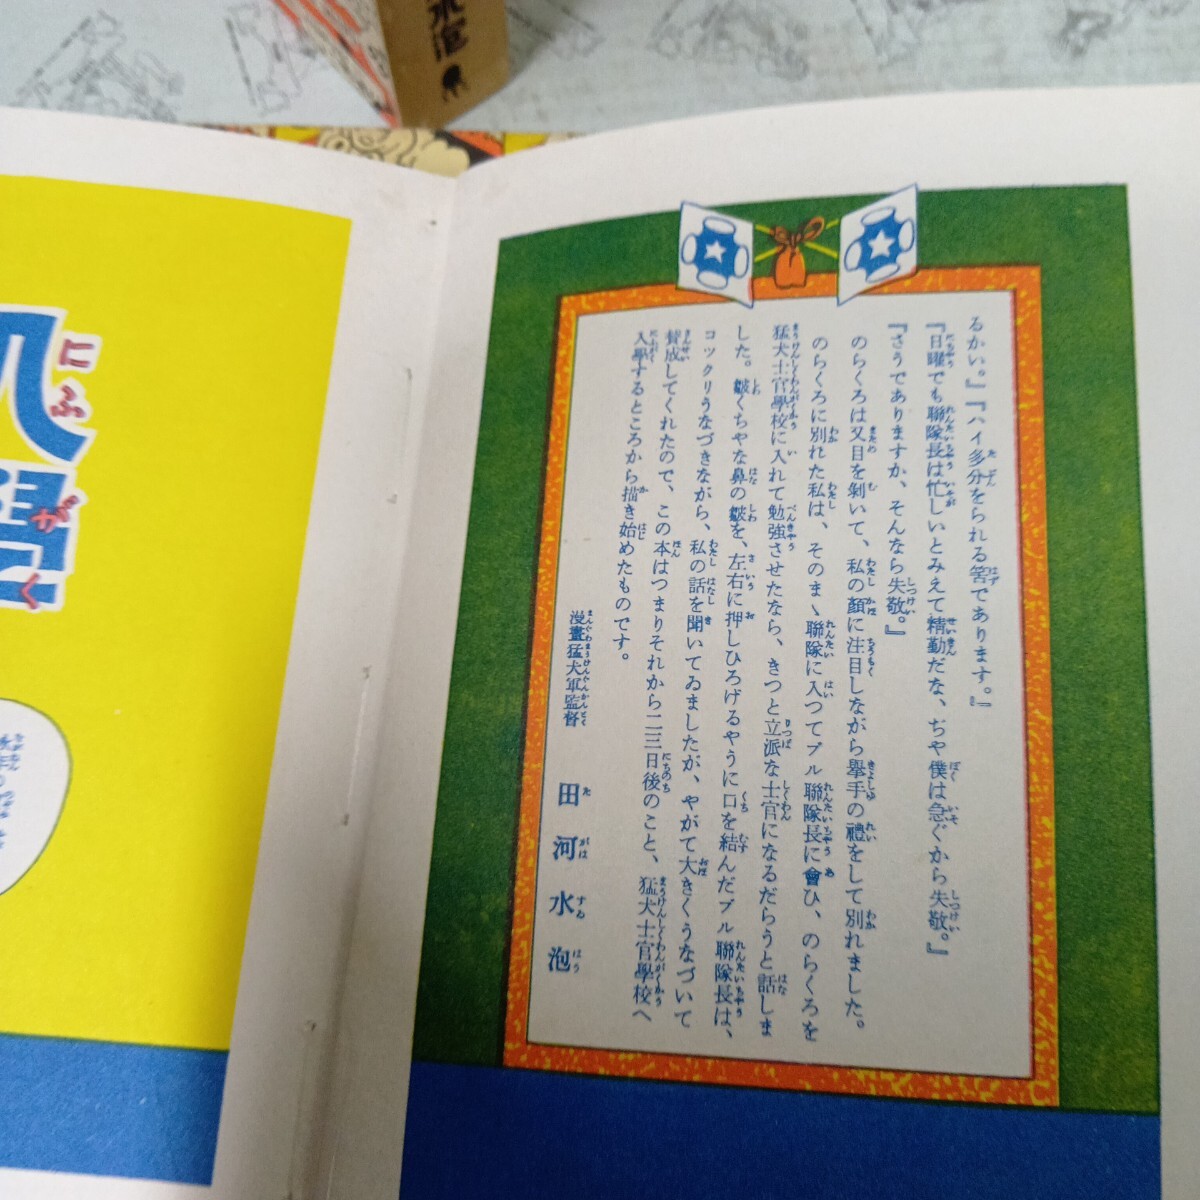 るかい。』『ハイ多分をられる筈であります。』
『日曜でも聯隊長は忙しいとみえて精勤だな、ぢや僕は急ぐから失敬。』
『さうでありますか、そんなら失敬。』
のらくろは又目を剝いて、私の顏に注目しながら擧手の禮をして別れました。
のらくろに別れた私は、そのまゝ聯隊に入つてブル聯隊長に會ひ、のらくろを
猛犬士官學校に入れて勉強させたなら、きつと立派な士官になるだらうと話しま
した。皺くちやな鼻の皺を、左右に押しひろげるやうに口を結んだブル聯隊長は、
コックリうなづきながら、私の話を聞いてゐましたが、やがて大きくうなづいて
賛成してくれたので、この本はつまりそれから二三日後のこと、猛犬士官學校へ
入學するところから描き始めたものです。
漫畫猛犬軍監督 田河水泡
にふ
がく
水泡